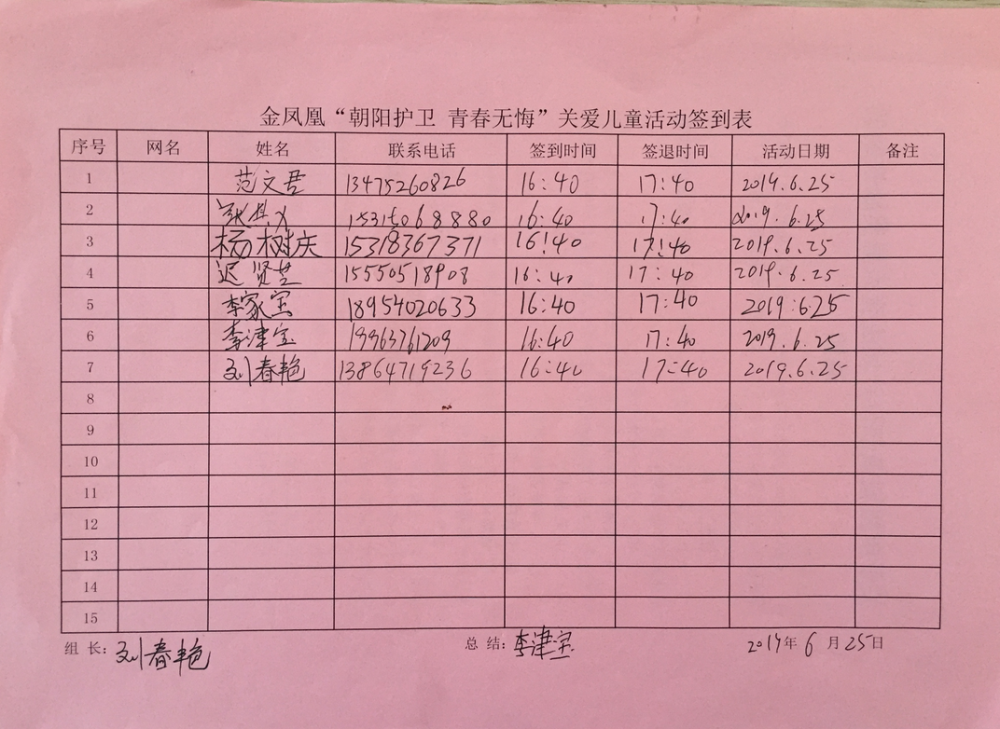 金凤凰“朝阳护卫 青春无悔”关爱儿童活动签到表
序号 网名 姓名 联系电话 签到时间 签退时间 活动日期 备注
1 范文君 13475260826 16:40 17:40 2019.6.25
2 16:40 17:40 2019.6.25
3 杨树庆 15318367371 16:40 17:40 2019.6.25
4 迟贤芝 15550518908 16:40 17:40 2019.6.25
5 李家宝 18954020633 16:40 17:40 2019.6.25
6 李津宝 19963761209 16:40 17:40 2019.6.25
7 刘春艳 13864719236 16:40 17:40 2019.6.25
8
9
10
11
12
13
14
15
组 长: 刘春艳 总 结: 李津宝 2019年 6 月 25日